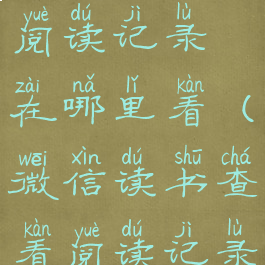 yuè dú jì lù
阅读记录
zài nǎ lǐ kàn
在哪里看(
wēi xìn dú shū chá
微信读书查
kàn yuè dú jì lù
看阅读记录